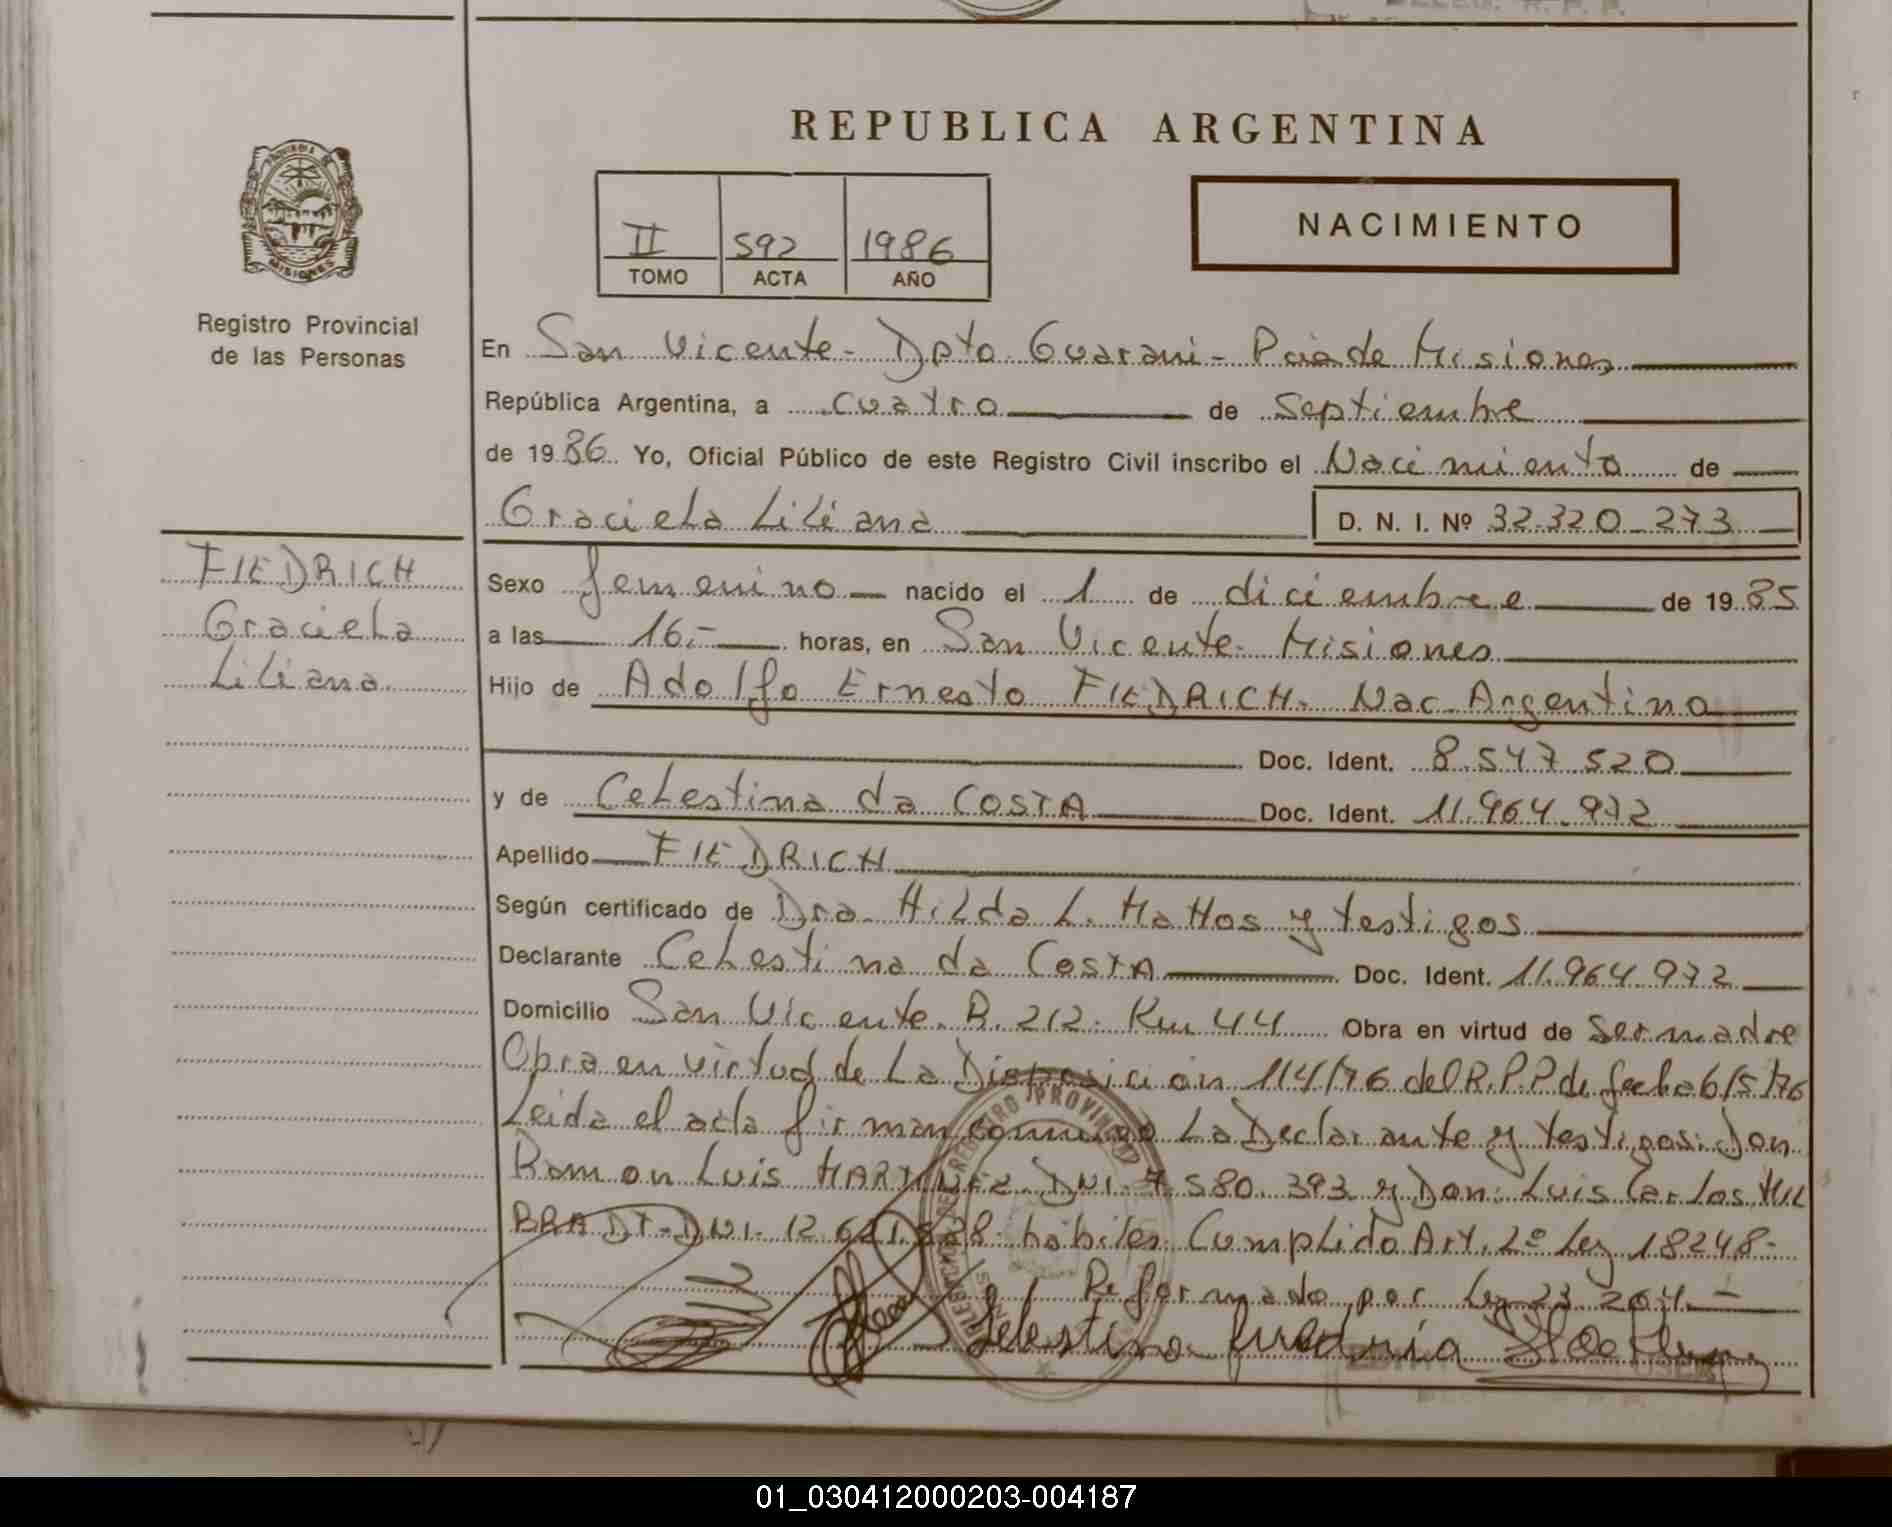 REPUBLICA ARGENTINA
II 592 1986
TOMO ACTA AÑO
NACIMIENTO
PROVINCIA DE
MISIONES
Registro Provincial
de las Personas
En San Vicente - Dpto Guarani - Pcia de Misiones
República Argentina, a cuatro de septiembre
de 1986 Yo, Oficial Público de este Registro Civil inscribo el Nacimiento de
Graciela Liliana D. N. I. Nº 32.320.273
FIEDRICH
Graciela
Liliana
Sexo femenino nacido el 1 de diciembre de 1985
a las 16.- horas, en San Vicente - Misiones
Hijo de Adolfo Ernesto FIEDRICH. Nac. Argentino
Doc. Ident. 8.547.520
y de Celestina da COSTA Doc. Ident. 11.964.972
Apellido FIEDRICH
Según certificado de Dra. Hilda L. Mattos y testigos
Declarante Celestina da COSTA Doc. Ident. 11.964.972
Domicilio San Vicente. R. 212. Km 44 Obra en virtud de Ser madre
Obra en virtud de La Disposicion 114/76 del R.P.P. de fecha 6/5/76
Leida el acta firman conmigo La Declarante y testigos: Don
Ramon Luis MARTINEZ DNI. 7.580.393 y Don: Luis Carlos HIL
BRADT - DNI. 12.621.528 habiles Cumplido Art. 2º Ley 18248-
Reformado por Ley 23.264.-
REGISTRO PROVINCIAL
01_030412000203-004187